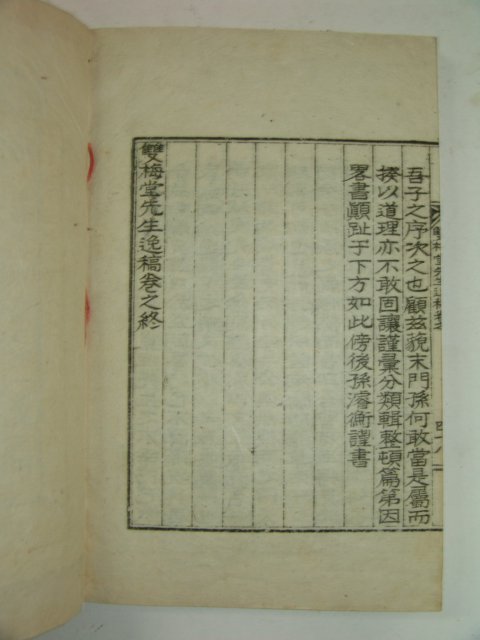 雙梅堂先生逸稿卷之
四十八
吾子之序次之也顧茲藐末門孫何敢當是屬而
揆以道理亦不敢固讓謹彙分類輯整頓篇第因
畧書顚趾于下方如此傍後孫濬衡謹書
雙梅堂先生逸稿卷之終